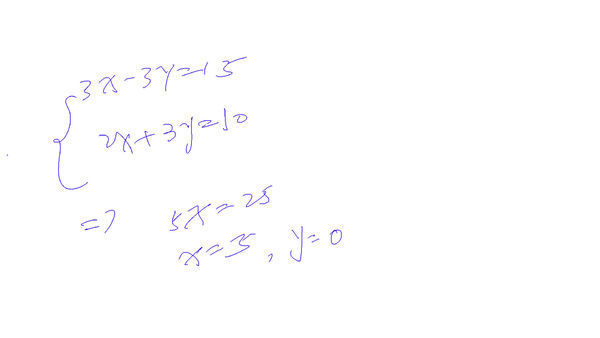 3x-3y=15
2x+3y=10
=> 5x=25
x=5, y=0